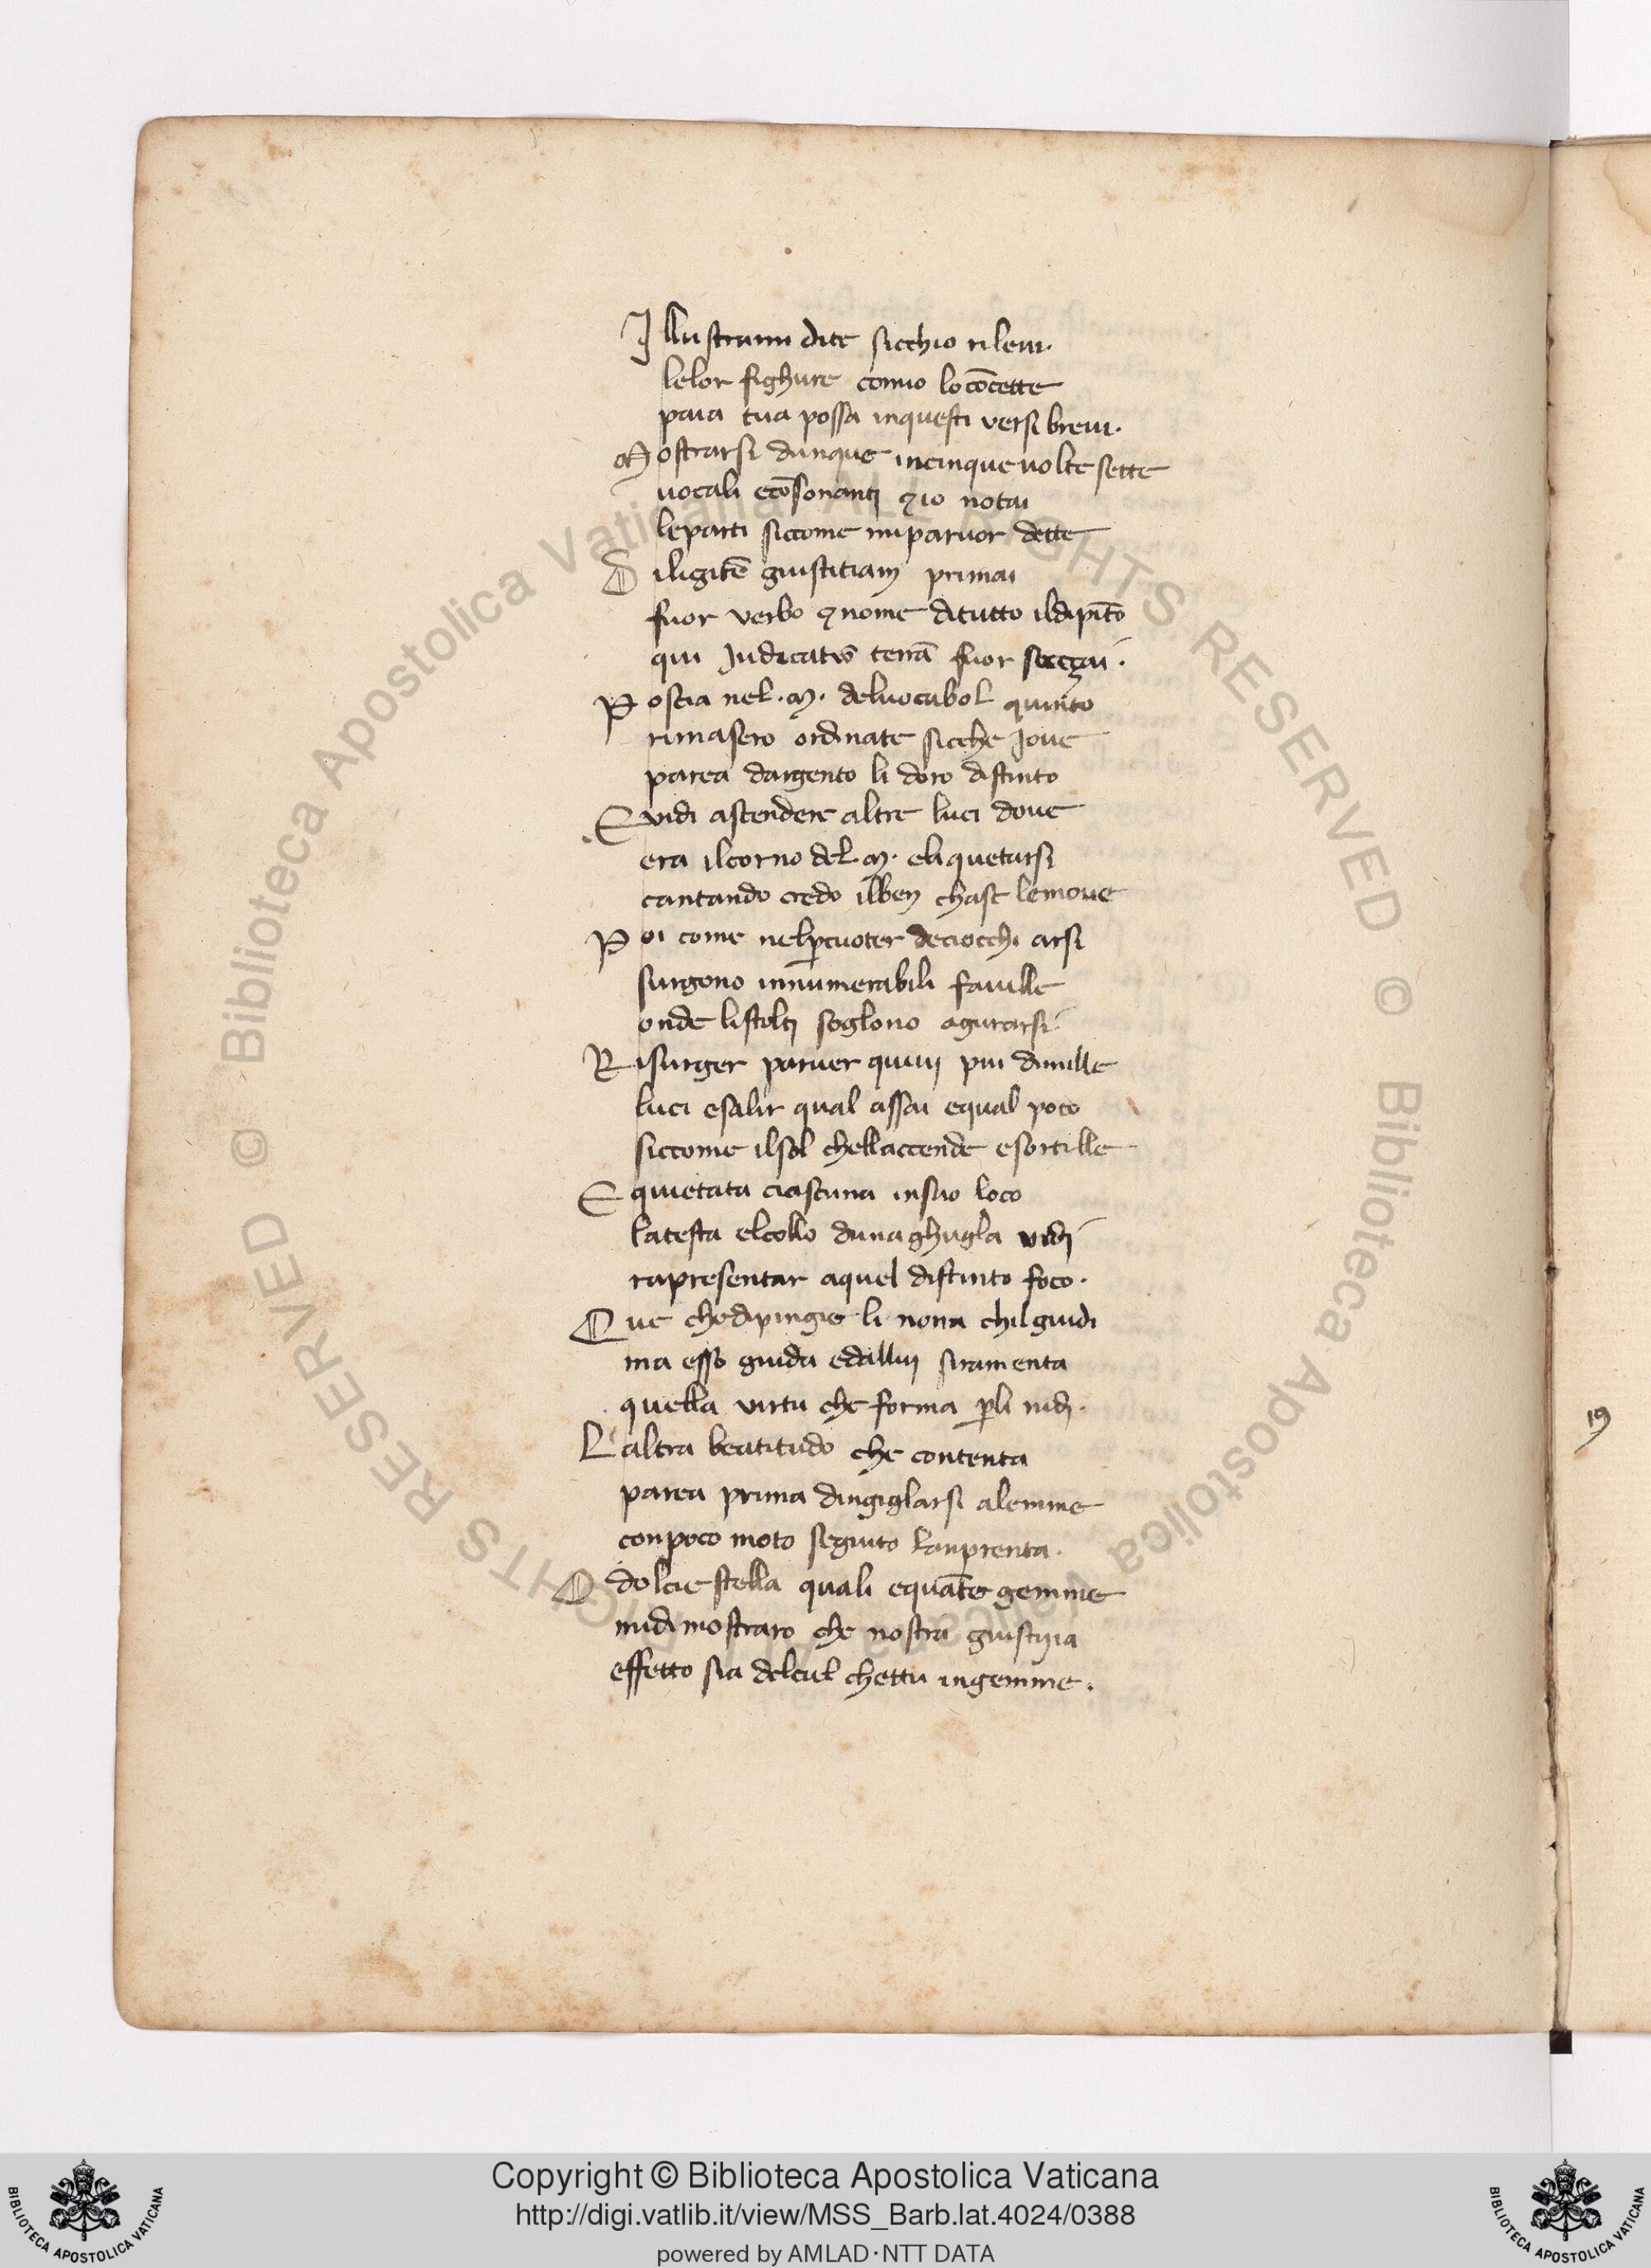 Illustrami dite sicchio rileui.
lelor fighure comio locōcette
paia tua possa inquesti versi breui.
Mostrarsi dunque incinque uolte sette
uocali ecōsonanti ꝫio notai
leparti siccome mi paruor dette
Diligitē giustitiam primai
fuor verbo ꝫ nome ditutto ildipīto
qui Judicatis terrā fuor seççai.
Poscia nel .m. deluocabol quinto
rimasero ordinate sicche Joue
parea dargento li doro distinto
E vidi ascendere altre luci doue
era ilcorno del m. eli quetarsi
cantando credo ilben chase lemoue
Poi come nelꝑcuoter deciocchi arsi
surgono innumerabili fauille
onde listolti soglono agurarsi
Risurger paruer quiui piu dimille
luci esalir qual assai equal poco
siccome ilsol chellaccende esortille
E quietata ciascuna insuo loco
latesta elcollo dunaghugla vidi
rapresentar aquel distinto foco.
Que chedipingie li nona chilguidi
ma esso guida edallui siramenta
quella virtu che forma ꝑli nidi.
Laltra beatitudo che contenta
parea prima dingiglarsi alemme
conpoco moto seguito lanprenta.
O dolcie stella quali equāte gemme
midimostraro che nostra giustitia
effetto sia delciel chettu ingemme.
19
© Biblioteca Apostolica Vaticana ALL RIGHTS RESERVED © Biblioteca Apostolica Vaticana ALL RIGHTS RESERVED
Copyright © Biblioteca Apostolica Vaticana
http://digi.vatlib.it/view/MSS_Barb.lat.4024/0388
powered by AMLAD·NTT DATA
BIBLIOTECA APOSTOLICA VATICANA
BIBLIOTECA APOSTOLICA VATICANA